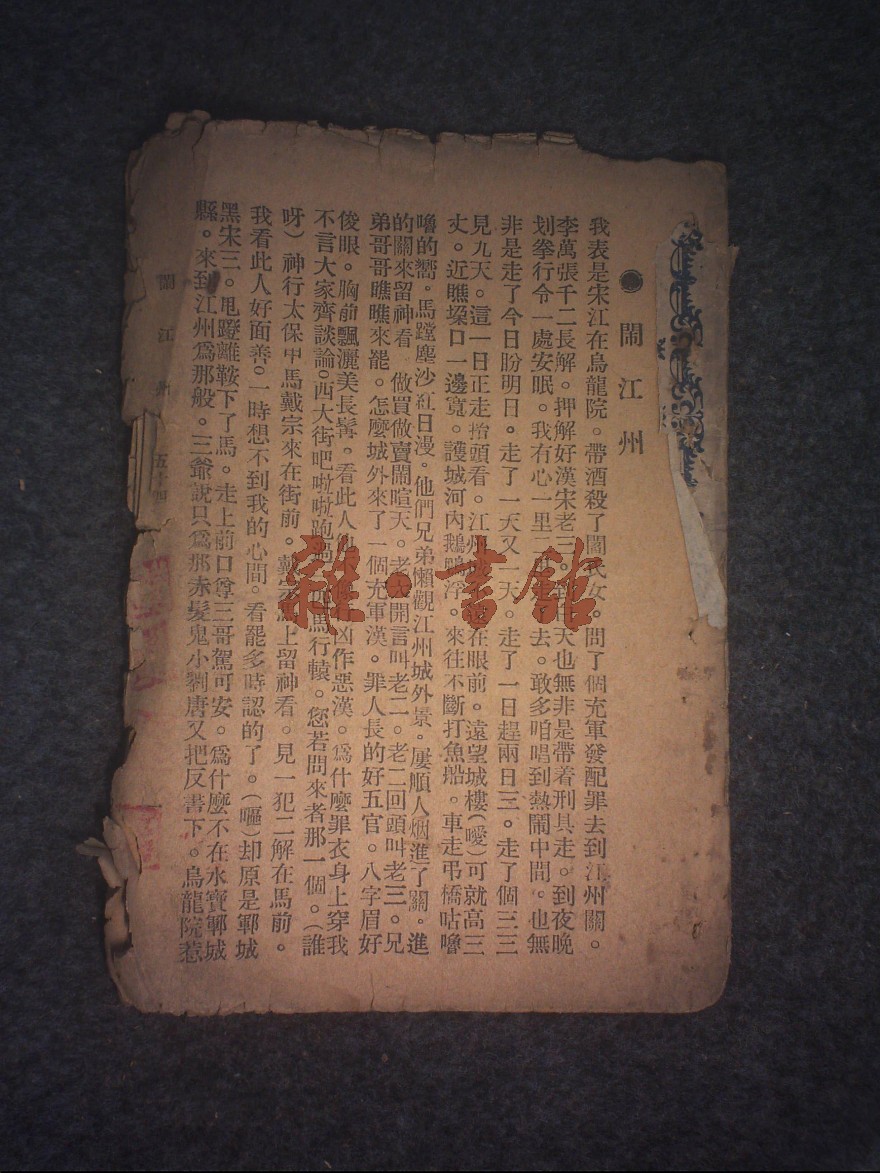 ● 鬧江州
我表是宋江在烏龍院。帶酒殺了閻氏女。問了個充軍發配罪去到江州關。
李萬張千二長解。押解好漢宋老三。天也無非是帶着刑具走。到夜晚
划拳行令一處安眠。我有心一里二里去。敢多咱唱到熱鬧中間。也無
非是走了今日盼明日。走了一天又一天。走了一日趕兩日三。走了個三三
見九天。這一日正走抬頭看。江州在眼前。遠望城樓(噯)可就高三
丈。近瞧垜口一邊寬。護城河內鵝鴨浮。來往不斷打魚船。車走弔橋咕嚕
嚕的嚮。馬蹚塵沙紅日漫。他們兄弟懶觀江州城外景。屢順人烟進了關。進
的關來留神看。做買做賣鬧喧天。老大開言叫老二。老二回頭叫老三。兄
弟哥哥瞧瞧來罷。怎麼城外來了一個充軍漢。罪人長的好五官。八字眉好
俊眼。胸前飄灑美長髯。看此人凶作惡漢。爲什麼罪衣身上穿我
不言大家齊談論。西大街吧啦啦跑過馬行轅。您若問來者那一個。(誰
呀)神行太保甲馬戴宗來在街前。戴宗馬上留神看。見一犯二解在馬前。
我看此人好面善。一時想不到我的心間。看罷多時認的了。(嘔)却原是鄆城
黑宋三。甩蹬離鞍下了馬。走上前口尊三哥駕可安。爲什麼不在水寶鄆城
縣。來到江州爲那般。三爺說只爲那赤髮鬼小劉唐又把反書下。烏龍院惹
鬧江州 五十四
雜·書館